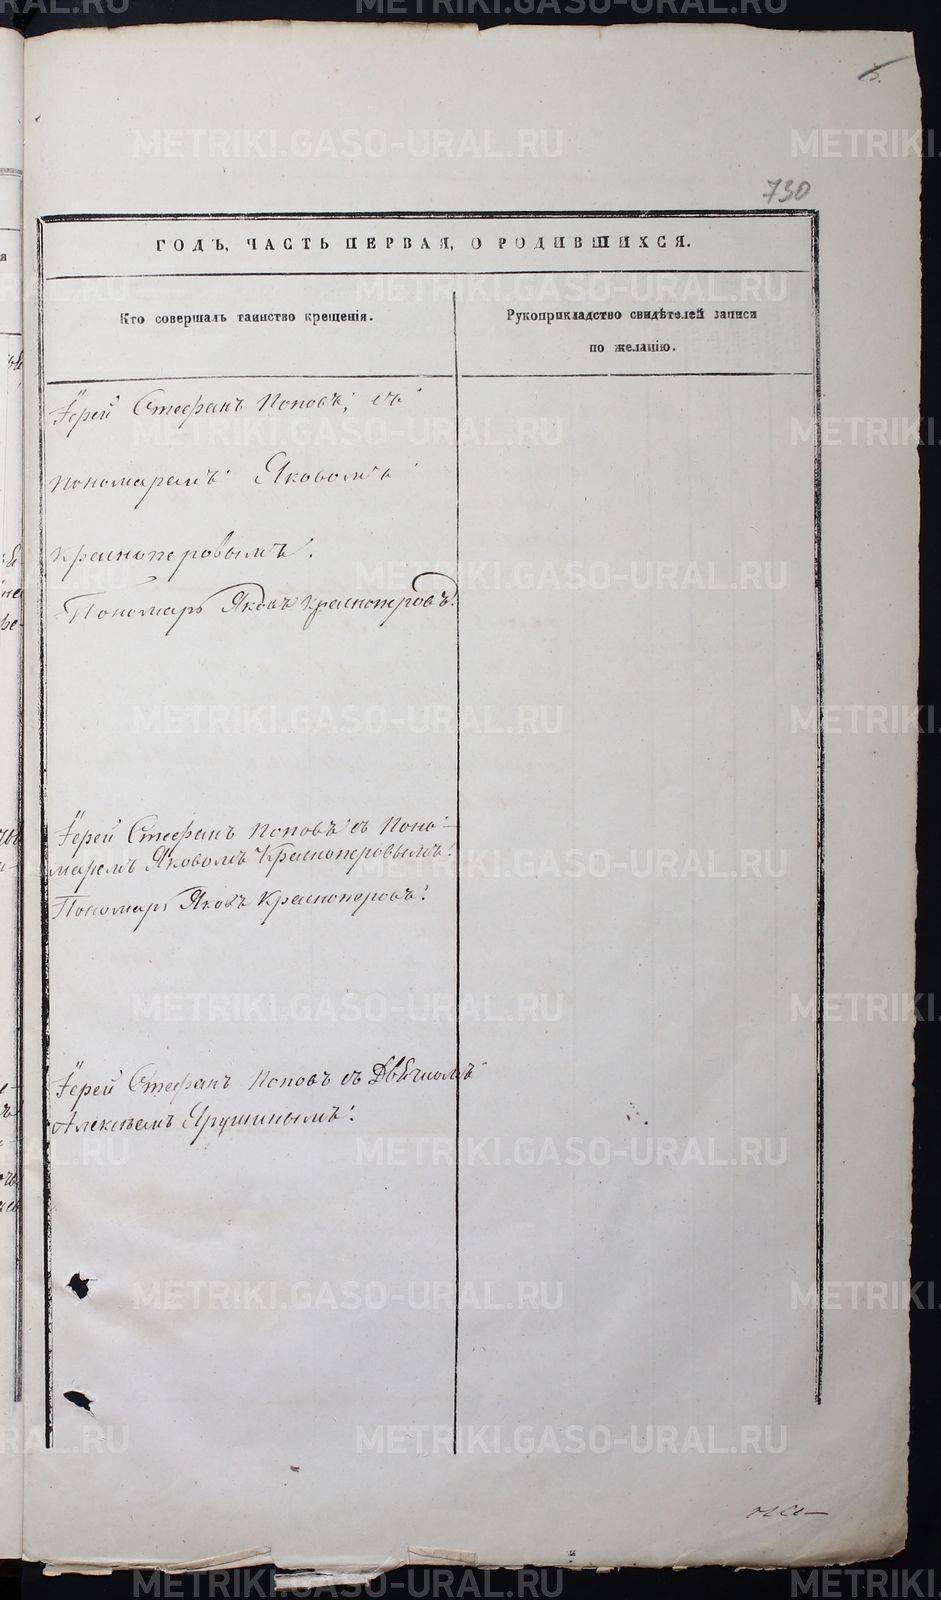 5.
730
ГОДЪ, ЧАСТЬ ПЕРВАЯ, О РОДИВШИХСЯ.
Кто совершалъ таинство крещенія.
Рукоприкладство свидѣтелей записи
по желанію.
Іерей Стефанъ Поповъ, съ
пономаремъ Яковомъ
Красноперовымъ.
Пономарь Яковъ Красноперовъ.
Іерей Стефанъ Поповъ съ Поно-
маремъ Яковомъ Красноперовымъ.
Пономарь Яковъ Красноперовъ.
Іерей Стефанъ Поповъ съ Дьячкомъ
Алексѣемъ Ярушинымъ.
METRIKI.GASO-URAL.RU